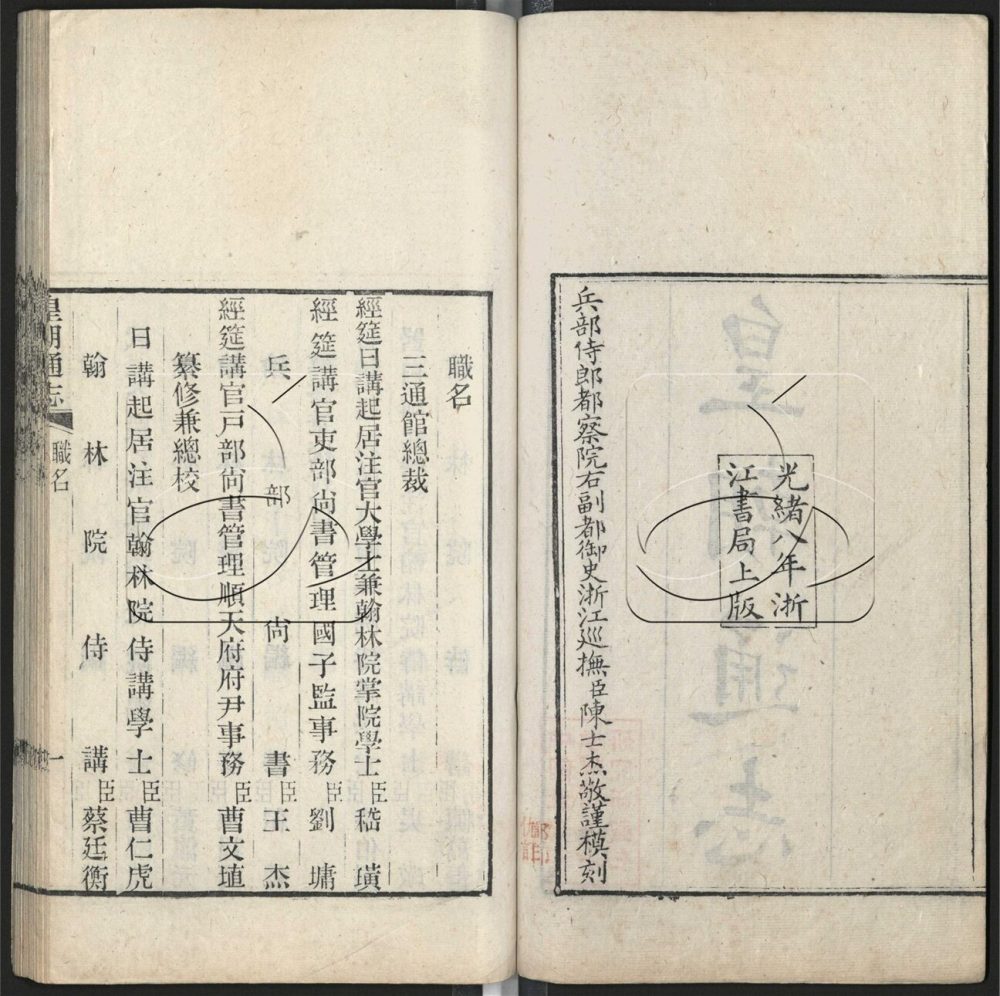 光緒八年浙
江書局上版
兵部侍郎都察院右副都御史浙江巡撫臣陳士杰敬謹模刻
職名
三通館總裁
經筵日講起居注官大學士兼翰林院掌院學士臣嵇璜
經筵講官吏部尚書管理國子監事務臣劉墉
兵部尚書臣王杰
經筵講官戸部尚書管理順天府府尹事務臣曹文埴
纂修兼總校
日講起居注官翰林院侍講學士臣曹仁虎
翰林院侍講臣蔡廷衡
皇朝通志
職名
一